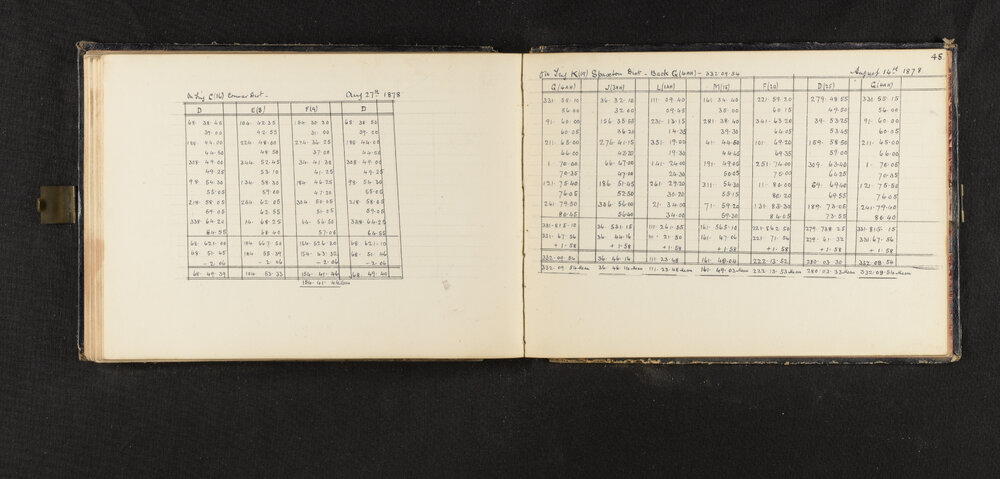 On Trig C(16) Connor Dist. - Aug 27th 1878
D E(8) F(9) D
68. 38.45 184. 42.35 154. 30.30 68. 38.50
39.00 42.55 31.00 39.00
44.50 48.50 37.00 44.50
308. 49.00 344. 52.45 34. 41.30 308. 49.00
49.25 53.10 41.25 49.25
98. 54.30 134. 58.30 184. 46.25 98. 54.30
55.05 59.00 47.20 55.05
218. 58.05 254. 62.05 304. 50.05 218. 58.05
59.05 62.55 51.05 59.05
338. 64.20 14. 68.25 64. 56.50 338. 64.25
64.55 68.40 57.05 64.55
68. 621.00 184. 667.50 154. 526.20 68. 621.10
68. 51.45 184. 55.39 154. 43.52 68. 51.46
- 2.06 - 2.06 - 2.06 - 2.06
68. 49.39 184. 53.33 154. 41.46 68. 49.40
154. 41. Mean
45
On Trig K(19) Spaxton Dist - Back G(4AH) - 332.09.54 August 14th 1878
G(4AH) J(3AH) L(1AH) M(15) F(20) D(25) G(4AH)
331. 55.10 36. 32.10 111. 09.40 161. 34.40 221. 59.20 279. 48.55 331. 55.15
56.00 32.00 35.00 60.15 49.50 56.00
91. 60.00 156. 35.55 231. 13.15 281. 38.40 341. 63.20 39. 53.25 91. 60.00
60.05 36.20 14.35 39.30 64.05 53.45 60.05
211. 65.00 276. 41.15 351. 19.00 41. 44.50 101. 69.20 159. 58.50 211. 65.00
66.00 42.25 19.30 44.45 69.35 59.00 66.00
1. 70.00 46.47.00 141. 24.00 191. 49.05 251. 74.00 309. 63.40 1. 70.05
70.35 47.00 24.30 50.05 75.00 64.25 70.35
121. 75.40 186. 51.45 261. 29.20 311. 54.30 11. 80.00 69. 69.40 121. 75.50
76.05 52.50 30.20 55.15 80.20 69.55 76.05
241. 79.50 306. 56.00 21. 34.00 71. 59.20 131. 83.30 189. 73.05 241. 79.40
80.45 56.40 34.00 59.30 84.05 73.55 80.40
331. 815.10 36. 531.15 111. 261.55 161. 565.10 221. 862.50 279. 738.25 331. 815.15
331. 67.56 36. 44.16 111. 21.50 161. 47.06 221. 71.54 279. 61.32 331. 67.56
+ 1.58 + 1.58 + 1.58 + 1.58 + 1.58 + 1.58
332. 09.54 36. 46.14 111. 23.48 161. 49.04 222. 13.52 280. 03.30 332. 09.54
332. 09.54 Mean 36. 46.14 Mean 111. 23.48 Mean 161. 49.03 Mean 222. 13.53 Mean 280. 03.33 Mean 332. 09.54 Mean